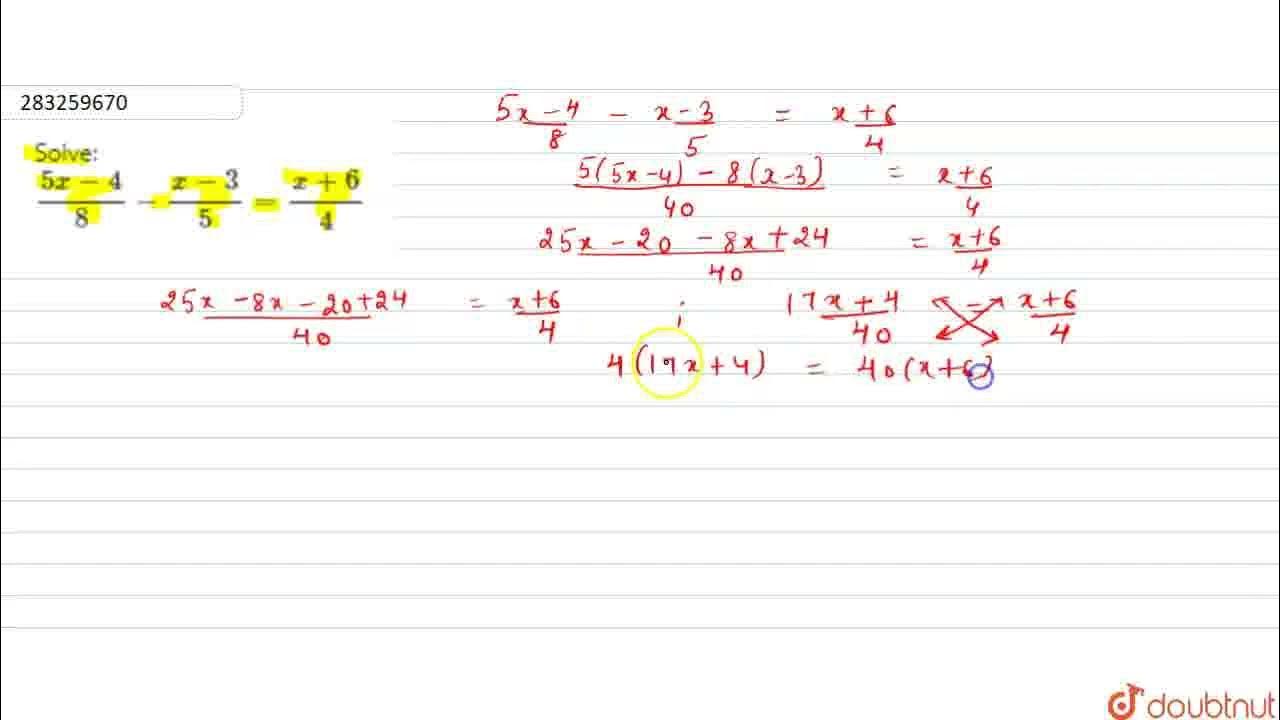 283259670
Solve:
(5x − 4)/8 − (x − 3)/5 = (x + 6)/4
(5x − 4)/8 − (x − 3)/5 = (x + 6)/4
(5(5x−4) − 8(x−3))/40 = (x+6)/4
(25x − 20 − 8x + 24)/40 = (x+6)/4
(25x − 8x − 20 + 24)/40 = (x+6)/4 ; (17x + 4)/40 = (x+6)/4
4(17x + 4) = 40(x+6)
doubtnut